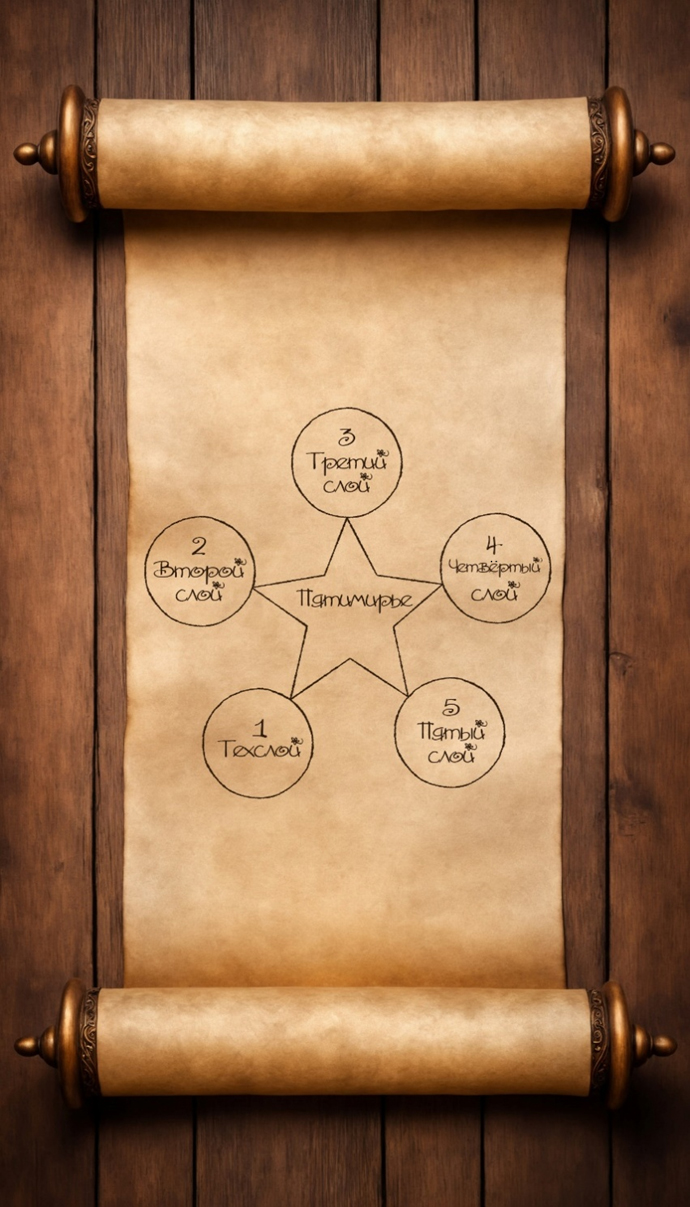 3
Третий
слой
2
Второй
слой
4
Четвёртый
слой
Пятимирье
1
Техслой
5
Пятый
слой